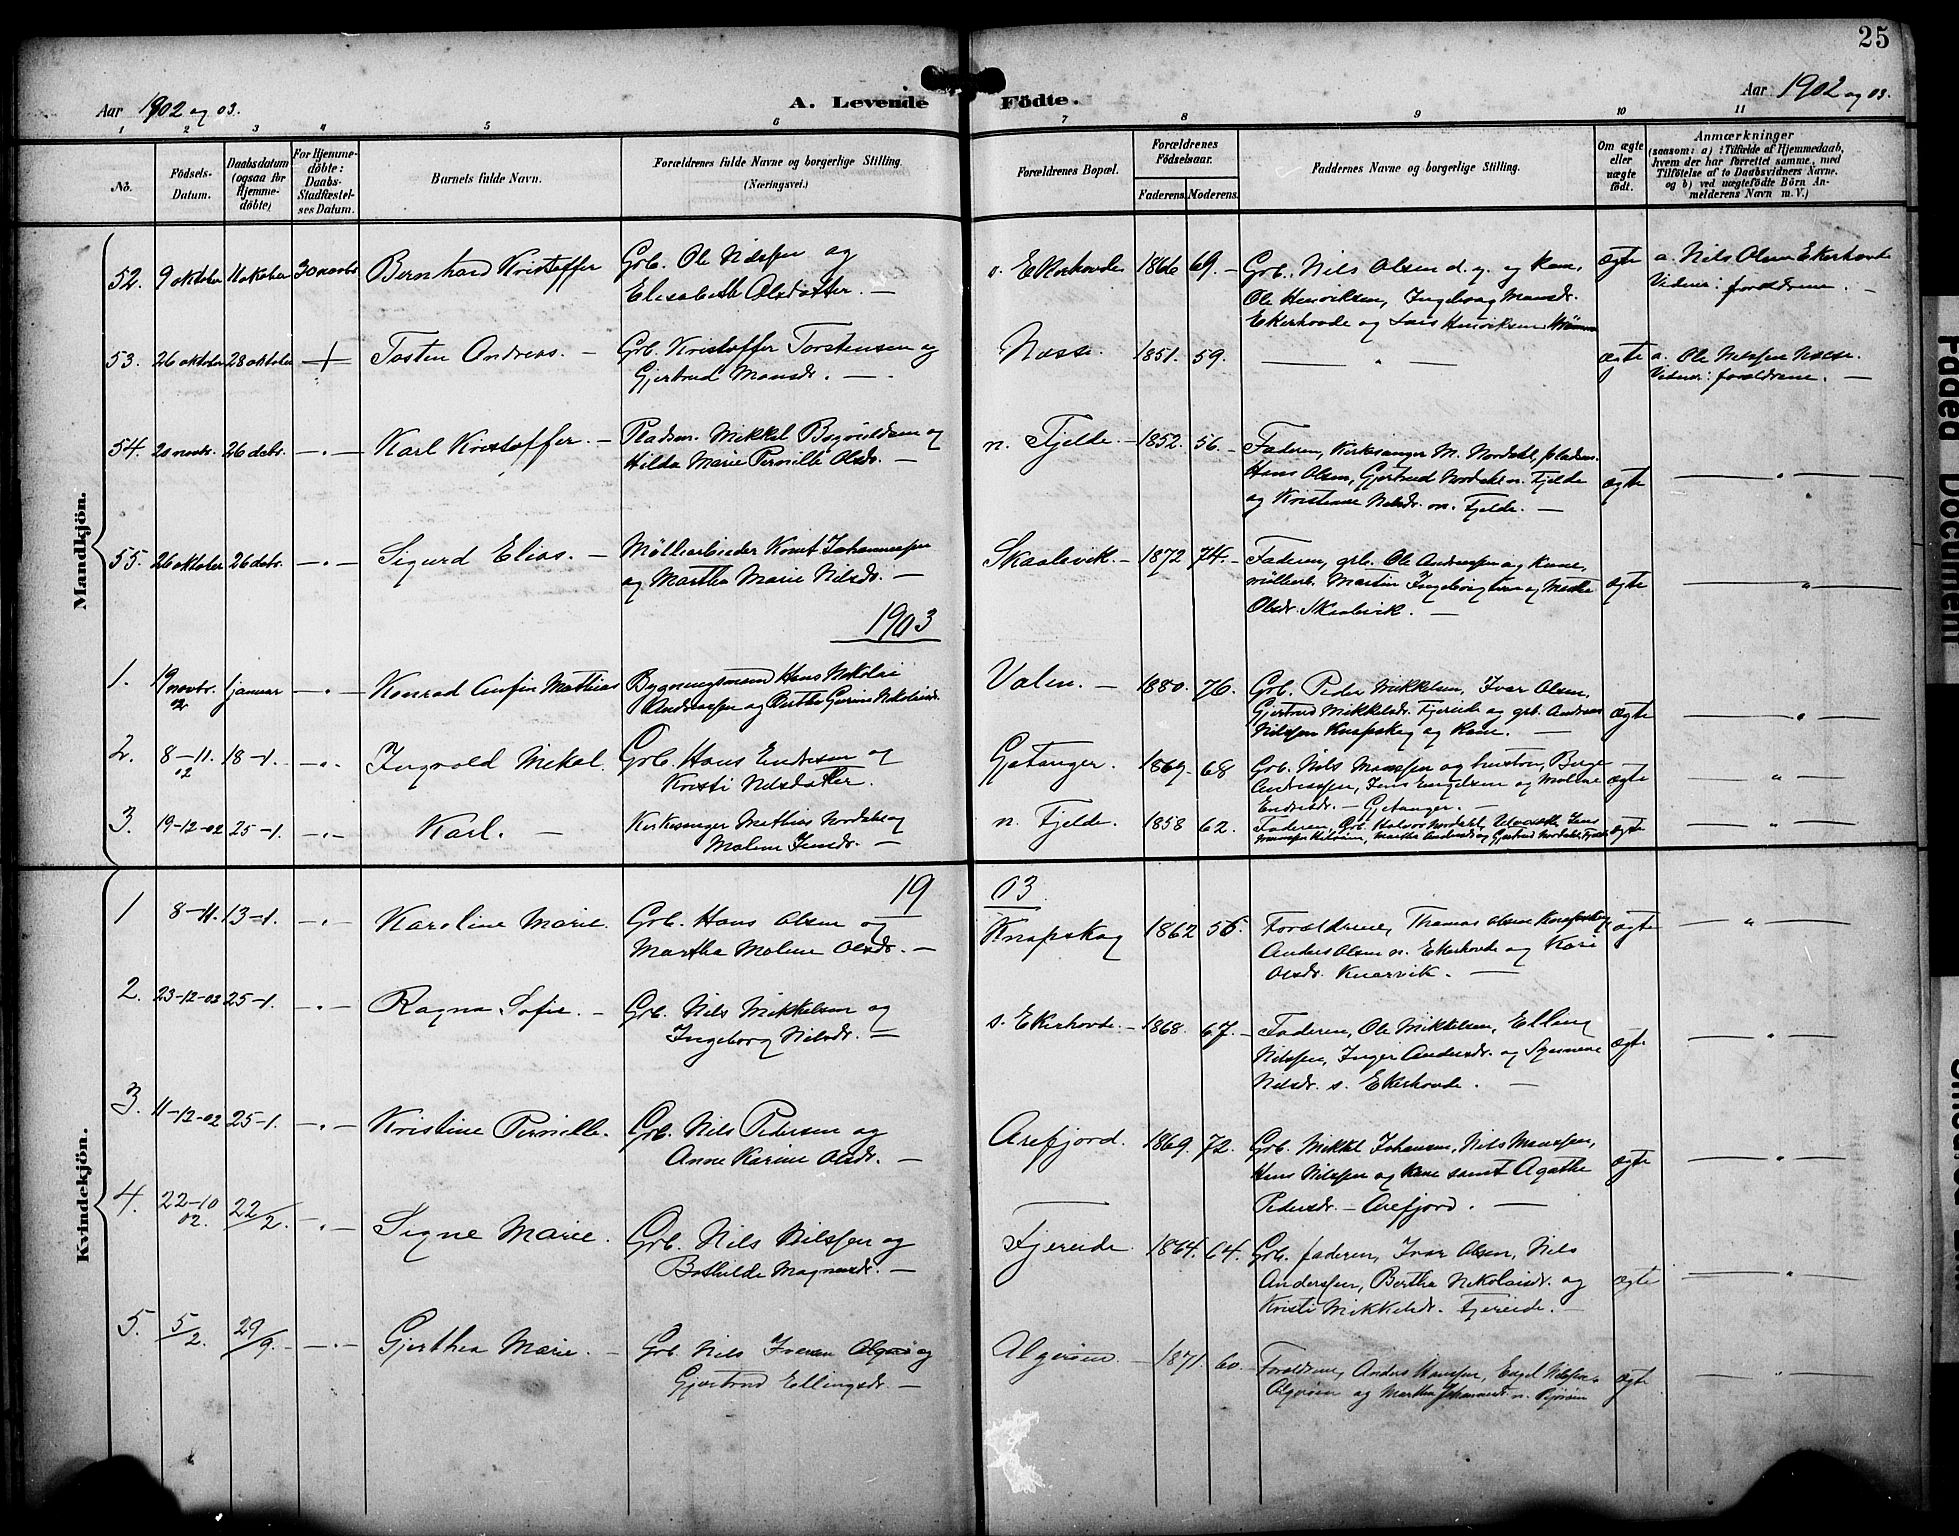 25
Aar 1902 og 03.
A. Levende Födte.
Aar 1902 og 03.
1 2 3 4 5 6 7 8 9 10 11
No.
Födsels-Datum.
Daabsdatum (ogsaa for Hjemme-döbte)
For Hjemme-döbte: Daabs-Stadfæstel-ses Datum.
Barnets fulde Navn.
Forældrenes fulde Navne og borgerlige Stilling.
(Næringsvei.)
Forældrenes Bopæl.
Forældrenes Födselsaar.
Faderens. Moderens.
Faddernes Navne og borgerlige Stilling.
Om ægte eller uægte födt.
Anmærkninger
(saasom: a) i Tilfælde af Hjemmedaab,
hvem der har forrettet samme, med
Tilföielse af to Daabsvidners Navne,
og b) ved uægtefödte Börn An-
melderens Navn m.V.)
Mandkjön.
52. 9 oktober 11 oktober 30 novbr. Bernhard Kristoffer Grb. Ole Nilssen og
Elisabeth Olsdatter. —
Ekerhovde 1866 69. — Grb. Nils Olsen d. y. og kone,
Ole Henriksen, Ingeborg Monsdr.
Ekerhovde og Lars Henriksen
ægte a. Nils Olsen Ekerhovde
Vidner: forældrene. —
53. 26 oktober 28 oktober + Tosten Andreas. — Grb. Kristoffer Torstensen og
Gjertrud Monsdr. —
Næsse. 1851. 59. — " — ægte a. Ole Nilssen Næsse.
Vidner: forældrene. —
54. 20 novbr. 26 debr. —"— Karl Kristoffer. — Pladsm. Mikkel og
Hilda Marie Pernille Olsdr. —
n. Fjelde. — 1852. 56. — Faderen, Kirkesanger M. Nordahl, pladsm.
Hans Olsen, Gjertrud Nordahl n. Fjelde
og Kristense Nilsdr. n. Fjelde. —
ægte — " —
55. 26 oktober 26 debr. —"— Sigurd Elias. — Möllearbeider Knut Johannessen
og Martha Marie Nilsdr. —
Skaalevik. — 1872 74. — Faderen, grb. Ole Andersen og kone,
möllearb. Martin og
Olsdr. Skaalevik. —
ægte — " —
1903
1. 19 novbr. 02 1 januar —"— Konrad Anfin Mathias Bygningsmand Hans Nikolai
Andreassen og Berthe Gurine Nikolaisdr.
Valen. — 1880. 76. Grb. Peder Mikkelsen, Ivar Olsen,
Gjertrud Mikkelsdr. Fjereide og grb. Andreas
Nilssen Knapskog og kone. —
ægte — " —
2. 8-11. 02 18-1. —"— Ingvald Mikal. Grb. Hans Endresen og
Kristi Nilsdatter.
Gjetanger. 1869. 68 Grb. Nils Monssen og hustru, Børge
Andreassen, Jens Engelsen og Malene
Endresdr. — Gjetanger. —
ægte — " —
3. 19-12-02 25-1. —"— Karl. — Kirkesanger Mathias Nordahl og
Malene Jensdr. —
n. Fjelde. 1858 62. Faderen, Grb. Halvor Nordahl, Jens
Martha Andersdr. og Gjertrud Nordahl, Fjelde
ægte — " —
Kvindekjön.
1903
1 8-11. 13-1. —"— Karoline Marie. Grb. Hans Olsen og
Martha Malene Olsdr. —
Knapskog 1862 56. Forældrene, Thomas Olsen Knapskog,
Anders Olsen n. Ekerhovde og Kari
Olsdr. Knarvik. —
ægte — " —
2. 23-12-02 25-1. —"— Ragna Sofie. — Grb. Nils Mikkelsen og
Ingeborg Nilsdr. —
s. Ekerhovde. — 1868. 67. — Faderen, Ole Mikkelsen, Elling
Nilssen, Inger Andersdr. og Synneve
Nilsdr. s. Ekerhovde. —
ægte — " —
3. 11-12-02 25-1. —"— Kristine Pernille. Grb. Nils Pedersen og
Anne Karine Olsdr. —
Arefjord. 1869. 72. Grb. Mikkel Johansen, Nils Monssen,
Hans Nilssen og kone samt Agathe
Pedersdr. — Arefjord. —
ægte — " —
4. 22-10 02. 22/2. —"— Signe Marie. Grb. Nils Nilssen og
Bothilde Magnusdr. —
Fjereide. 1864. 64. Grb. faderen, Ivar Olsen, Nils
Anderssen, Bertha Nikolaisdr. og
Kristi Mikkelsdr. Fjereide. —
ægte — " —
5. 5/2. 29/9. —"— Gjerthea Marie. — Grb. Nils Iversen Algrø og
Gjertrud Ellingsdr. —
Algrøen. — 1871. 60. Forældrene, Anders Hanssen, Engel Nilssen,
Algrøen og Martha Johannesdr. n.
ægte — " —
Faded Document